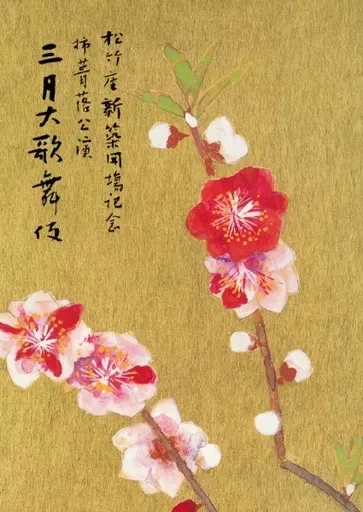 松竹座新築開場記念
柿葺落公演
三月大歌舞伎